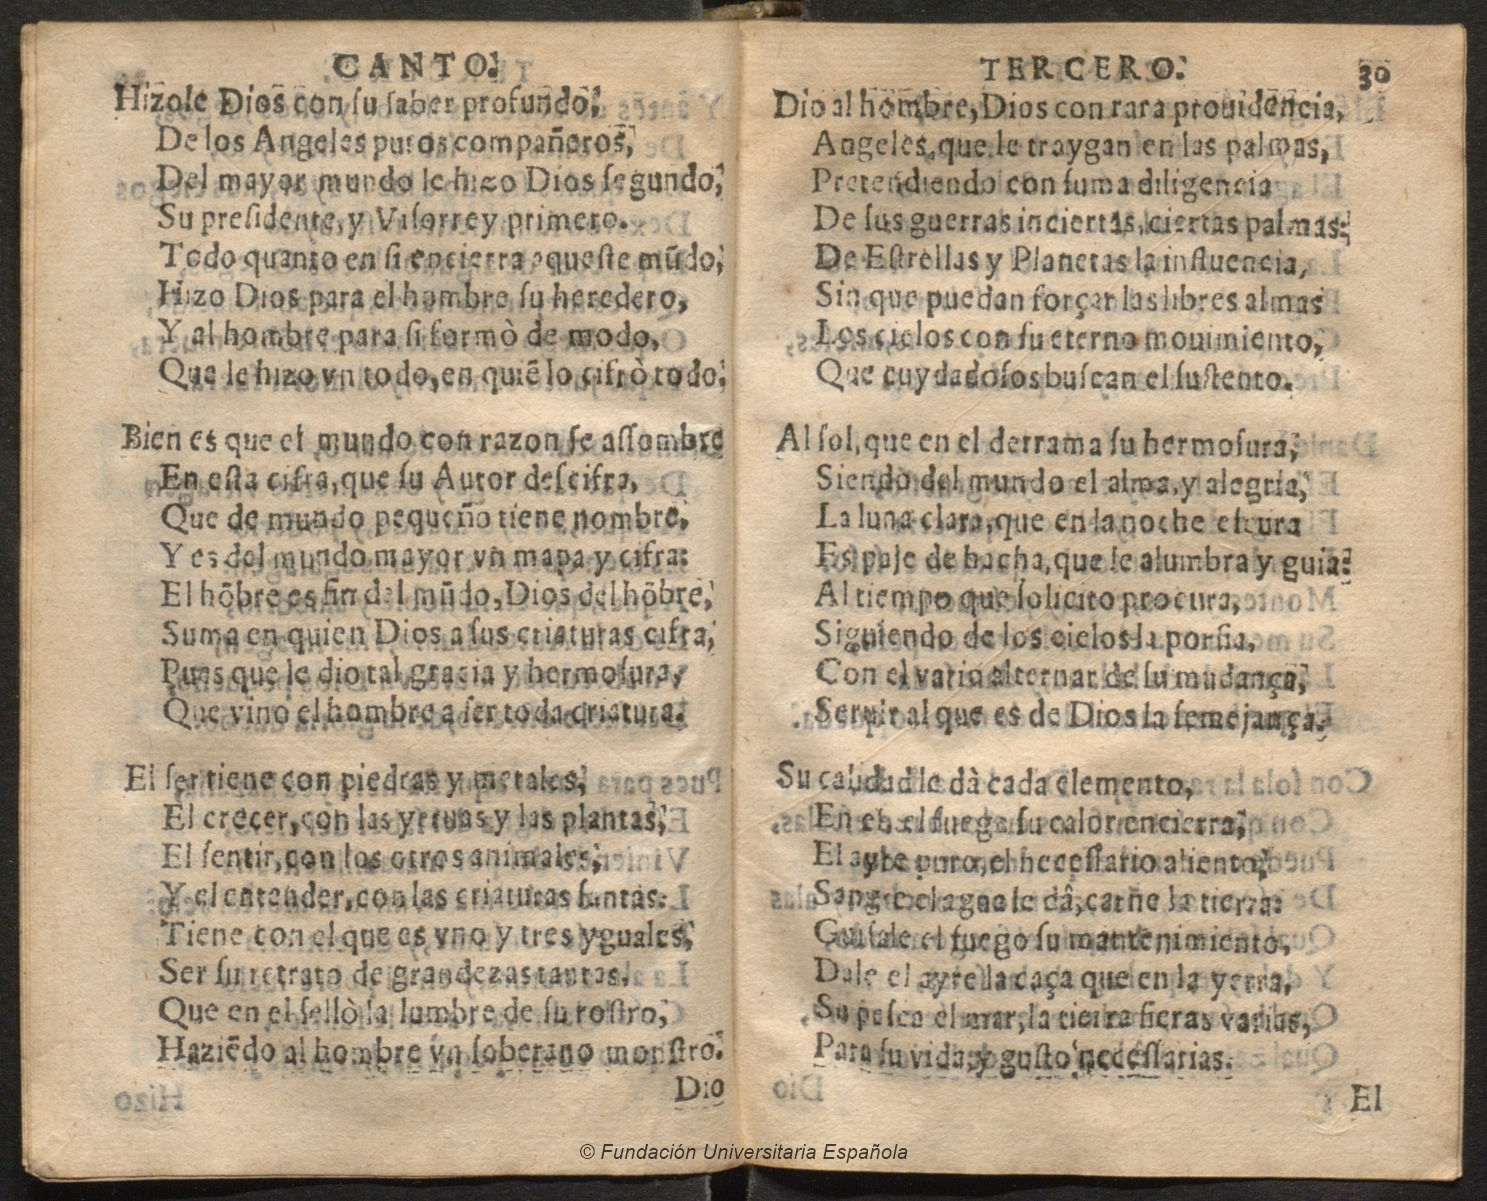 CANTO.
Hizole Dios con ſu ſaber profundo,
De los Angeles puros compañeros,
Del mayor mundo le hizo Dios ſegundo,
Su preſidente, y Viſorrey primero.
Todo quanto en ſi encierra aqueſte mũdo,
Hizo Dios para el hombre ſu heredero,
Y al hombre para ſi formò de modo,
Que le hizo vn todo, en quiẽ lo cifrò todo.
Bien es que el mundo con razon ſe aſſombre
En eſta cifra, que ſu Autor deſcifra,
Que de mundo pequeño tiene nombre,
Y es del mundo mayor vn mapa y cifra:
El hõbre es fin del mũdo, Dios del hõbre,
Suma en quien Dios a ſus criaturas cifra,
Pues que le dio tal gracia y hermoſura,
Que vino el hombre a ſer toda criatura.
El ſer tiene con piedras y metales,
El crecer, con las yeruas y las plantas,
El ſentir, con los otros animales,
Y el entender, con las criaturas ſantas.
Tiene con el que es vno y tres yguales,
Ser ſu retrato de grandezas tantas,
Que en el ſellò la lumbre de ſu roſtro,
Haziẽdo al hombre vn ſoberano monſtro.
Dio
TERCERO. 30
Dio al hombre, Dios con rara prouidencia,
Angeles, que le traygan en las palmas,
Pretendiendo con ſuma diligencia
De ſus guerras inciertas, ciertas palmas:
De Eſtrellas y Planetas la influencia,
Sin que puedan forçar las libres almas
Los cielos con ſu eterno mouimiento,
Que cuydadoſos buſcan el ſuſtento.
Al ſol, que en el derrama ſu hermoſura,
Siendo del mundo el alma, y alegria,
La luna clara, que en la noche eſcura
Es paje de hacha, que le alumbra y guia:
Al tiempo que ſolicito procura,
Siguiendo de los cielos la porfia,
Con el vario alternar de ſu mudança,
Seruir al que es de Dios la ſemejança.
Su calidad le dà cada elemento,
En el el fuego ſu calor encierra,
El ayre puro, el neceſſario aliento,
Sangre el agua le dâ, carne la tierra:
Guiſale el fuego ſu mantenimiento,
Dale el ayre la caça que en la yerra,
Su peſca el mar, la tierra fieras varias,
Para ſu vida, y guſto neceſſarias.
El
© Fundación Universitaria Española